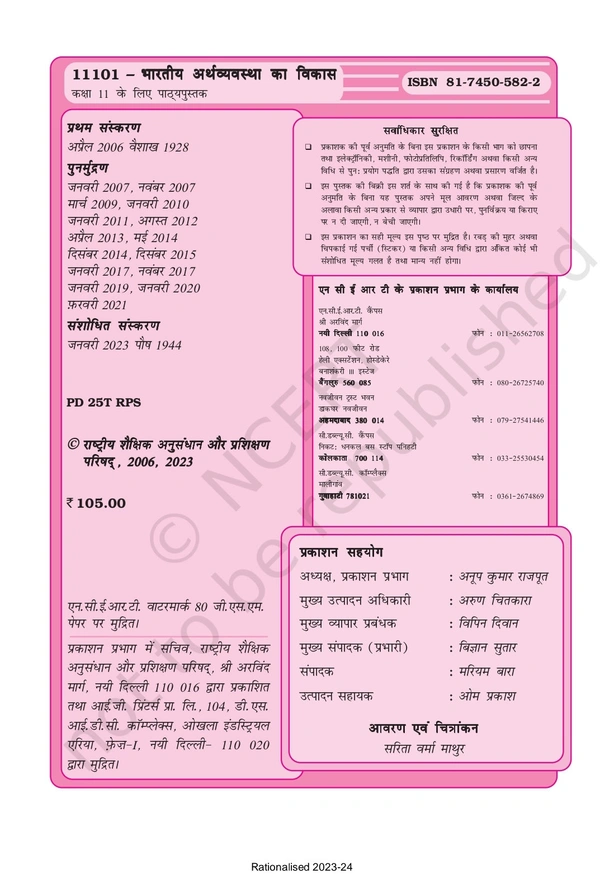 11101 – भारतीय अर्थव्यवस्था का विकास
कक्षा 11 के लिए पाठ्यपुस्तक
ISBN 81-7450-582-2
प्रथम संस्करण
अप्रैल 2006 वैशाख 1928
पुनर्मुद्रण
जनवरी 2007, नवंबर 2007
मार्च 2009, जनवरी 2010
जनवरी 2011, अगस्त 2012
अप्रैल 2013, मई 2014
दिसंबर 2014, दिसंबर 2015
जनवरी 2017, नवंबर 2017
जनवरी 2019, जनवरी 2020
फ़रवरी 2021
संशोधित संस्करण
जनवरी 2023 पौष 1944
PD 25T RPS
© राष्ट्रीय शैक्षिक अनुसंधान और प्रशिक्षण
परिषद्, 2006, 2023
₹ 105.00
एन.सी.ई.आर.टी. वाटरमार्क 80 जी.एस.एम.
पेपर पर मुद्रित।
प्रकाशन प्रभाग में सचिव, राष्ट्रीय शैक्षिक
अनुसंधान और प्रशिक्षण परिषद्, श्री अरविंद
मार्ग, नयी दिल्ली 110 016 द्वारा प्रकाशित
तथा आई.जी. प्रिंटर्स प्रा. लि., 104, डी.एस.
आई.डी.सी. कॉम्प्लेक्स, ओखला इंडस्ट्रियल
एरिया, फ़ेज़-I, नयी दिल्ली- 110 020
द्वारा मुद्रित।
सर्वाधिकार सुरक्षित
❑ प्रकाशक की पूर्व अनुमति के बिना इस प्रकाशन के किसी भाग को छापना
तथा इलेक्ट्रॉनिकी, मशीनी, फोटोप्रतिलिपि, रिकॉर्डिंग अथवा किसी अन्य
विधि से पुन: प्रयोग पद्धति द्वारा उसका संग्रहण अथवा प्रसारण वर्जित है।
❑ इस पुस्तक की बिक्री इस शर्त के साथ की गई है कि प्रकाशक की पूर्व
अनुमति के बिना यह पुस्तक अपने मूल आवरण अथवा जिल्द के
अलावा किसी अन्य प्रकार से व्यापार द्वारा उधारी पर, पुनर्विक्रय या किराए
पर न दी जाएगी, न बेची जाएगी।
❑ इस प्रकाशन का सही मूल्य इस पृष्ठ पर मुद्रित है। रबड़ की मुहर अथवा
चिपकाई गई पर्ची (स्टिकर) या किसी अन्य विधि द्वारा अंकित कोई भी
संशोधित मूल्य गलत है तथा मान्य नहीं होगा।
एन सी ई आर टी के प्रकाशन प्रभाग के कार्यालय
एन.सी.ई.आर.टी. कैंपस
श्री अरविंद मार्ग
नयी दिल्ली 110 016 फोन : 011-26562708
108, 100 फीट रोड
हेली एक्सटेंशन, होस्डेकेरे
बनाशंकरी III इस्टेज
बैंगलुरु 560 085 फोन : 080-26725740
नवजीवन ट्रस्ट भवन
डाकघर नवजीवन
अहमदाबाद 380 014 फोन : 079-27541446
सी.डब्ल्यू.सी. कैंपस
निकट: धनकल बस स्टॉप पनिहटी
कोलकाता 700 114 फोन : 033-25530454
सी.डब्ल्यू.सी. कॉम्प्लैक्स
मालीगांव
गुवाहाटी 781021 फोन : 0361-2674869
प्रकाशन सहयोग
अध्यक्ष, प्रकाशन प्रभाग : अनूप कुमार राजपूत
मुख्य उत्पादन अधिकारी : अरुण चितकारा
मुख्य व्यापार प्रबंधक : विपिन दिवान
मुख्य संपादक (प्रभारी) : बिज्ञान सुतार
संपादक : मरियम बारा
उत्पादन सहायक : ओम प्रकाश
आवरण एवं चित्रांकन
सरिता वर्मा माथुर
© NCERT
not to be republished
Rationalised 2023-24